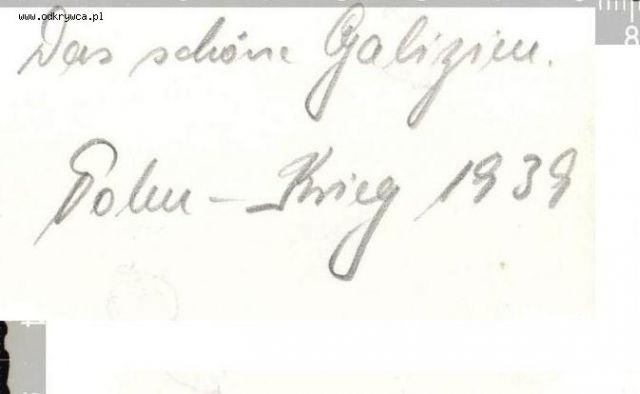 www.odkrywca.pl
Das schöne Galizien.
Polen - Krieg 1939
8